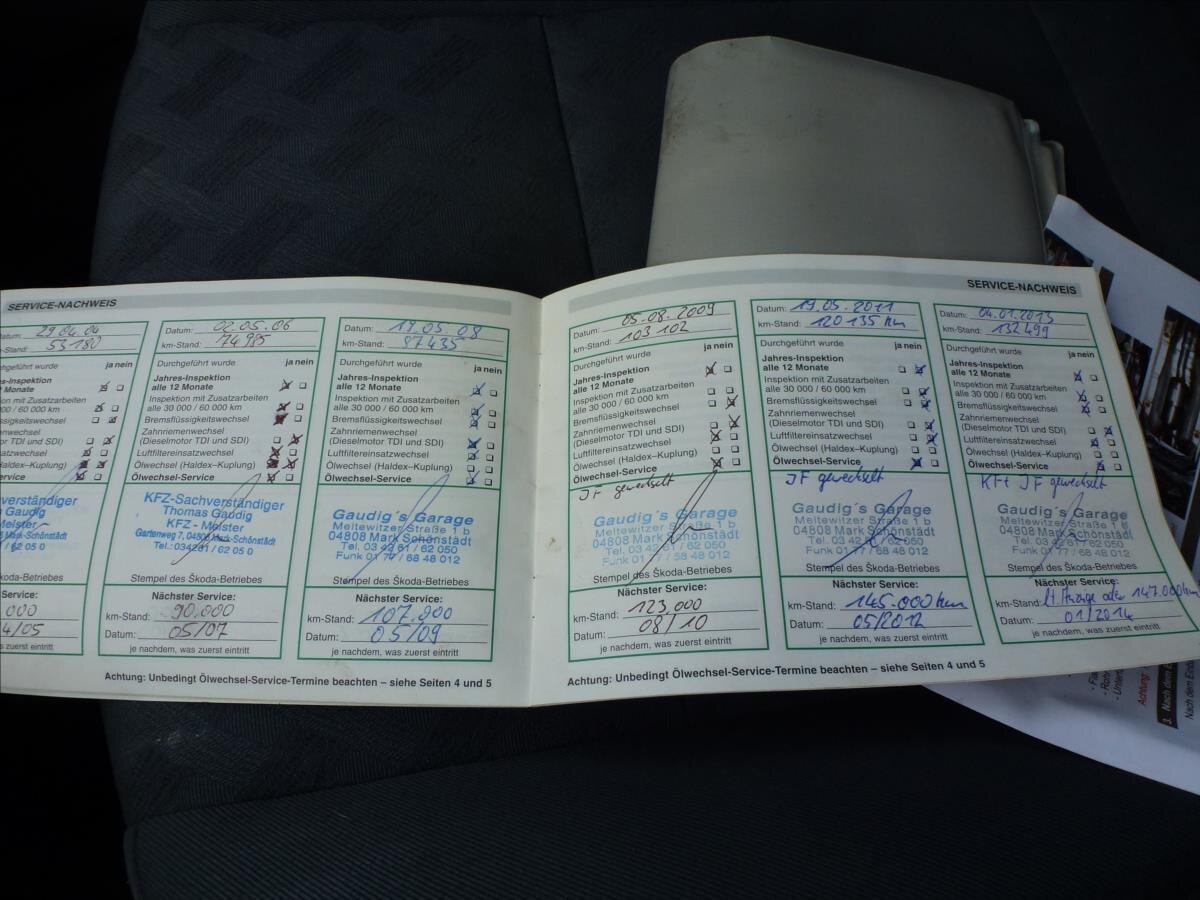 SERVICE-NACHWEIS
Datum: 29.04.04
-Stand: 53180
ja nein
s-Inspektion
2 Monate
00 / 60 000 km
ssigkeitswechsel
or TDI und SDI)
satzwechsel
Haldex–Kuplung)
Service
verständiger
Gaudig
Meister
koda-Betriebes
Service:
000
4/05
Datum: 02.05.06
km-Stand: 74985
Durchgeführt wurde ja nein
Jahres-Inspektion
alle 12 Monate
Inspektion mit Zusatzarbeiten
alle 30 000 / 60 000 km
Bremsflüssigkeitswechsel
Zahnriemenwechsel
(Dieselmotor TDI und SDI)
Luftfiltereinsatzwechsel
Ölwechsel (Haldex–Kuplung)
Ölwechsel-Service
KFZ-Sachverständiger
Thomas Gaudig
KFZ - Meister
Gartenweg 7, 04808 Mark-Schönstädt
Tel.: 034261 / 62 05 0
Stempel des Škoda-Betriebes
Nächster Service:
km-Stand: 90.000
Datum: 05/07
je nachdem, was zuerst eintritt
Datum: 19.05.08
km-Stand: 87435
Durchgeführt wurde ja nein
Jahres-Inspektion
alle 12 Monate
Inspektion mit Zusatzarbeiten
alle 30 000 / 60 000 km
Bremsflüssigkeitswechsel
Zahnriemenwechsel
(Dieselmotor TDI und SDI)
Luftfiltereinsatzwechsel
Ölwechsel (Haldex–Kuplung)
Ölwechsel-Service
Gaudig´s Garage
Meltewitzer Straße 1 b
04808 Mark Schönstädt
Tel. 03 42 61 / 62 050
Funk 01 77 / 68 48 012
Stempel des Škoda-Betriebes
Nächster Service:
km-Stand: 107.000
Datum: 05/09
je nachdem, was zuerst eintritt
Achtung: Unbedingt Ölwechsel-Service-Termine beachten – siehe Seiten 4 und 5
SERVICE-NACHWEIS
Datum: 05.08.2009
km-Stand: 103 102
Durchgeführt wurde ja nein
Jahres-Inspektion
alle 12 Monate
Inspektion mit Zusatzarbeiten
alle 30 000 / 60 000 km
Bremsflüssigkeitswechsel
Zahnriemenwechsel
(Dieselmotor TDI und SDI)
Luftfiltereinsatzwechsel
Ölwechsel (Haldex–Kuplung)
Ölwechsel-Service
IF gewechselt
Gaudig´s Garage
Meltewitzer Straße 1 b
04808 Mark Schönstädt
Tel. 03 42 61 / 62 050
Funk 01 77 / 68 48 012
Stempel des Škoda-Betriebes
Nächster Service:
km-Stand: 123.000
Datum: 08/10
je nachdem, was zuerst eintritt
Datum: 19.05.2011
km-Stand: 120 135 km
Durchgeführt wurde ja nein
Jahres-Inspektion
alle 12 Monate
Inspektion mit Zusatzarbeiten
alle 30 000 / 60 000 km
Bremsflüssigkeitswechsel
Zahnriemenwechsel
(Dieselmotor TDI und SDI)
Luftfiltereinsatzwechsel
Ölwechsel (Haldex–Kuplung)
Ölwechsel-Service
IF gewechselt
Gaudig´s Garage
Meltewitzer Straße 1 b
04808 Mark Schönstädt
Tel. 03 42 61 / 62 050
Funk 01 77 / 68 48 012
Stempel des Škoda-Betriebes
Nächster Service:
km-Stand: 145.000 km
Datum: 05/2012
je nachdem, was zuerst eintritt
Datum: 04.01.2013
km-Stand: 132499
Durchgeführt wurde ja nein
Jahres-Inspektion
alle 12 Monate
Inspektion mit Zusatzarbeiten
alle 30 000 / 60 000 km
Bremsflüssigkeitswechsel
Zahnriemenwechsel
(Dieselmotor TDI und SDI)
Luftfiltereinsatzwechsel
Ölwechsel (Haldex–Kuplung)
Ölwechsel-Service
KFt IF gewechselt
Gaudig´s Garage
Meltewitzer Straße 1 b
04808 Mark Schönstädt
Tel. 03 42 61 / 62 050
Funk 01 77 / 68 48 012
Stempel des Škoda-Betriebes
Nächster Service:
km-Stand: lt. Anzeige oder 147.000km
Datum: 01/2014
je nachdem, was zuerst eintritt
Achtung: Unbedingt Ölwechsel-Service-Termine beachten – siehe Seiten 4 und 5
Achtung
3. Nach dem